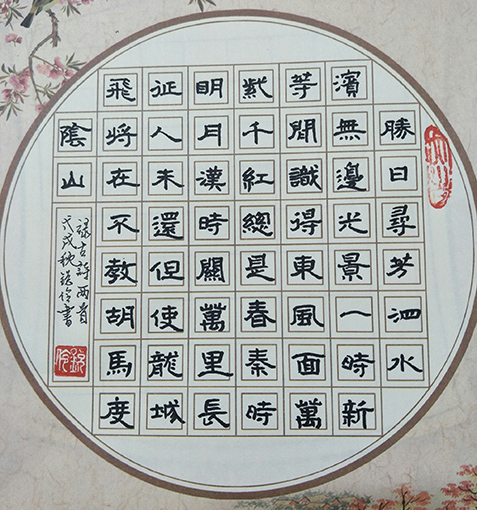 勝日尋芳泗水
濱無邊光景一時新
等間識得東風面萬
紫千紅總是春秦時
明月漢時關萬里長
征人未還但使龍城
飛將在不教胡馬度
陰山
録古詩兩首
戊戌秋書